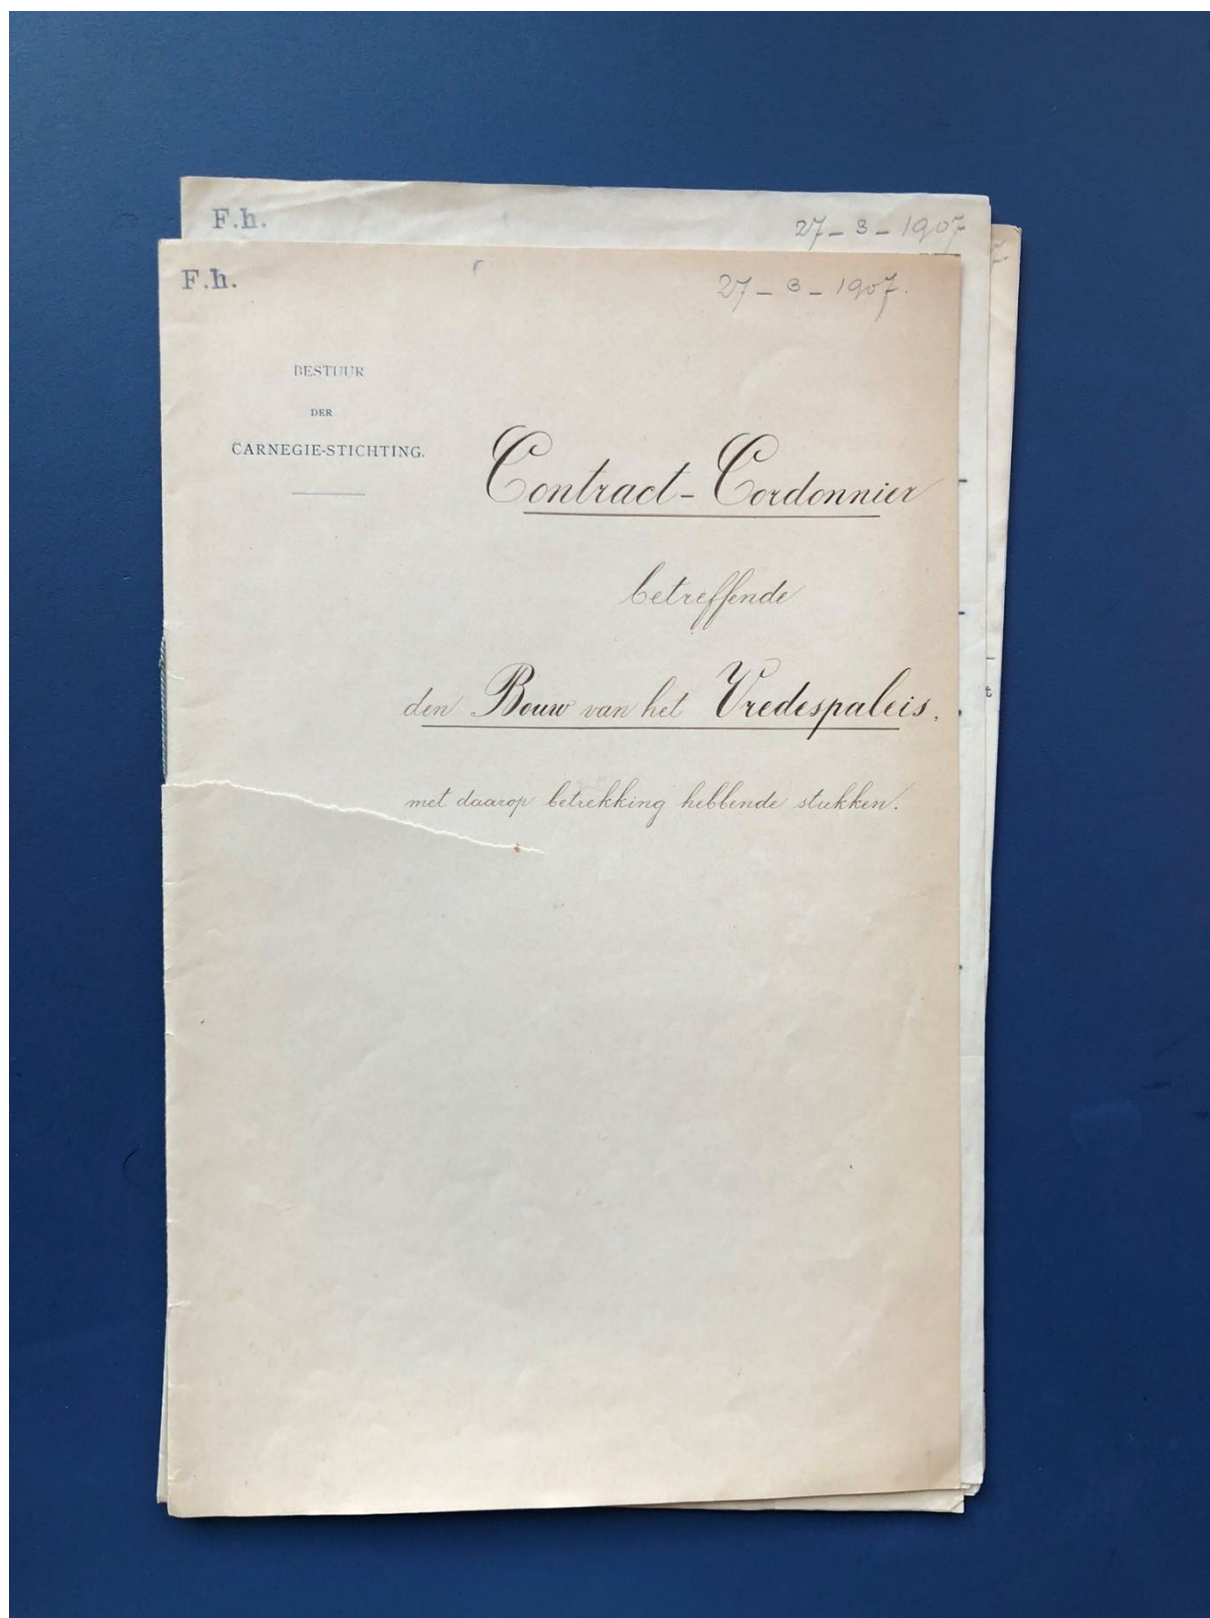 F.h.
27-3-1907
F.h.
27-3-1907.
BESTUUR
DER
CARNEGIE-STICHTING.
Contract-Cordonnier
betreffende
den Bouw van het Vredespaleis,
met daarop betrekking hebbende stukken.